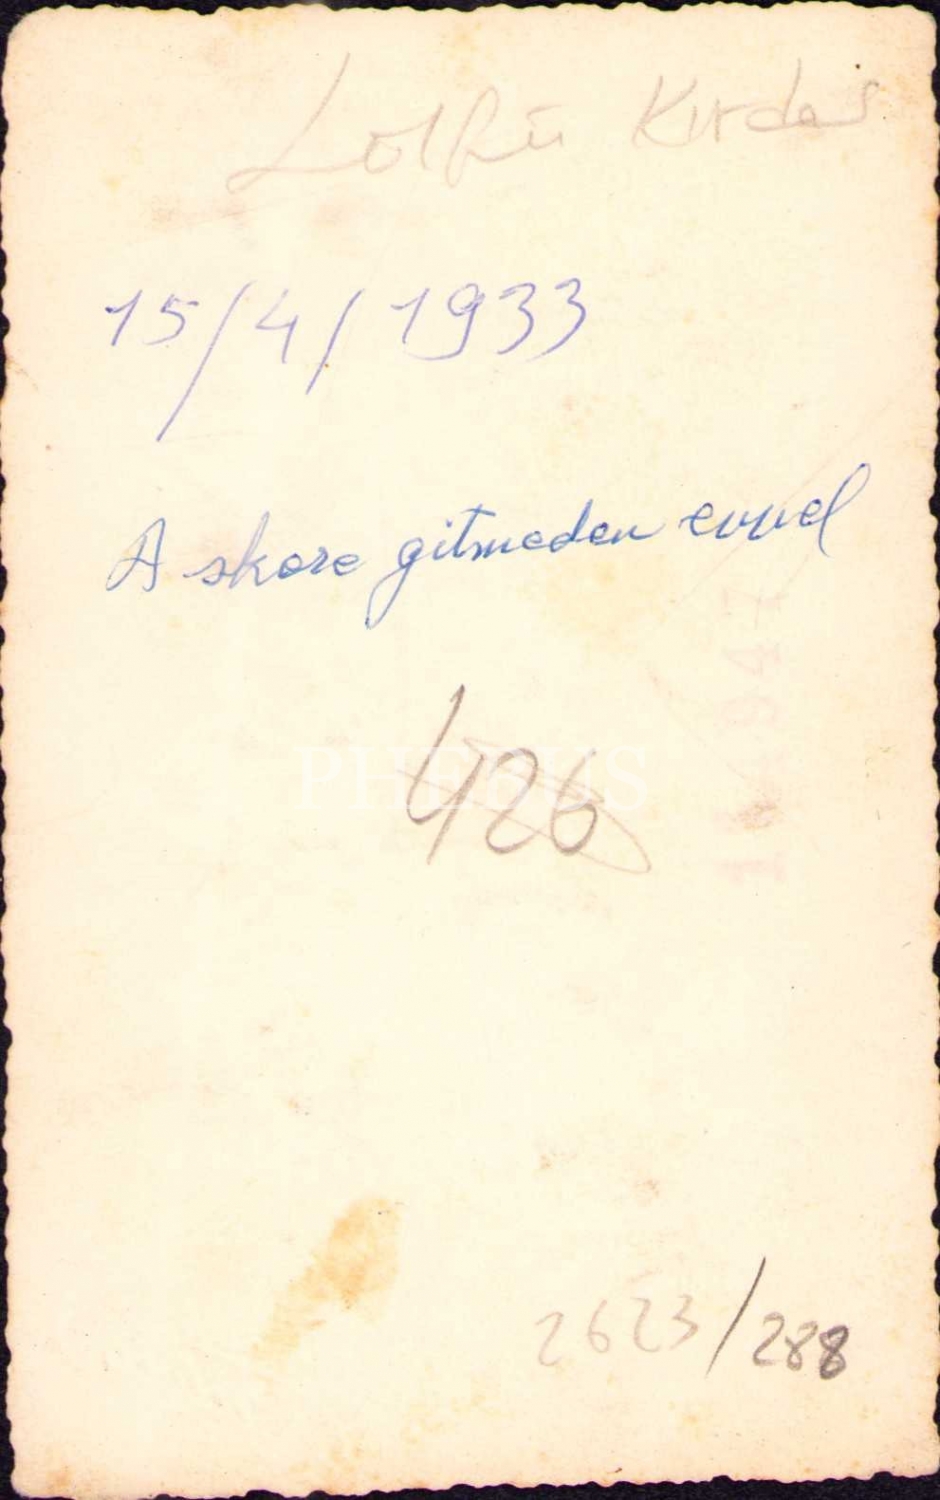 Lütfü Kırdar
15/4/1933
Askere gitmeden evvel
PHEBUS
426
2623/288